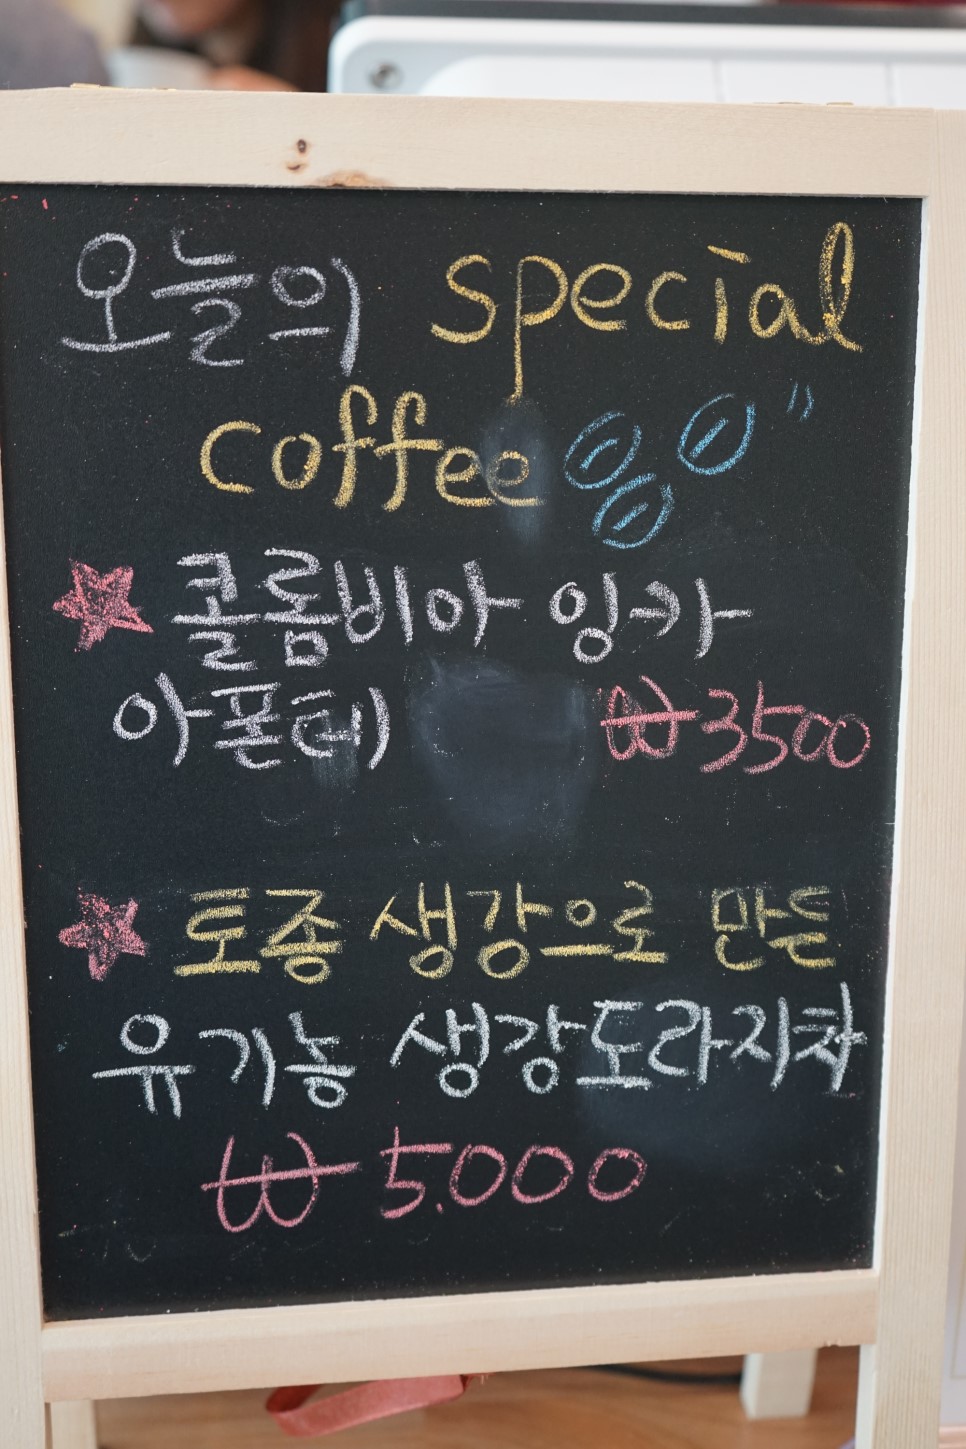 오늘의 special
coffee
콜롬비아 잉카
아폰테 ₩3500
토종 생강으로 만든
유기농 생강도라지차
₩ 5.000